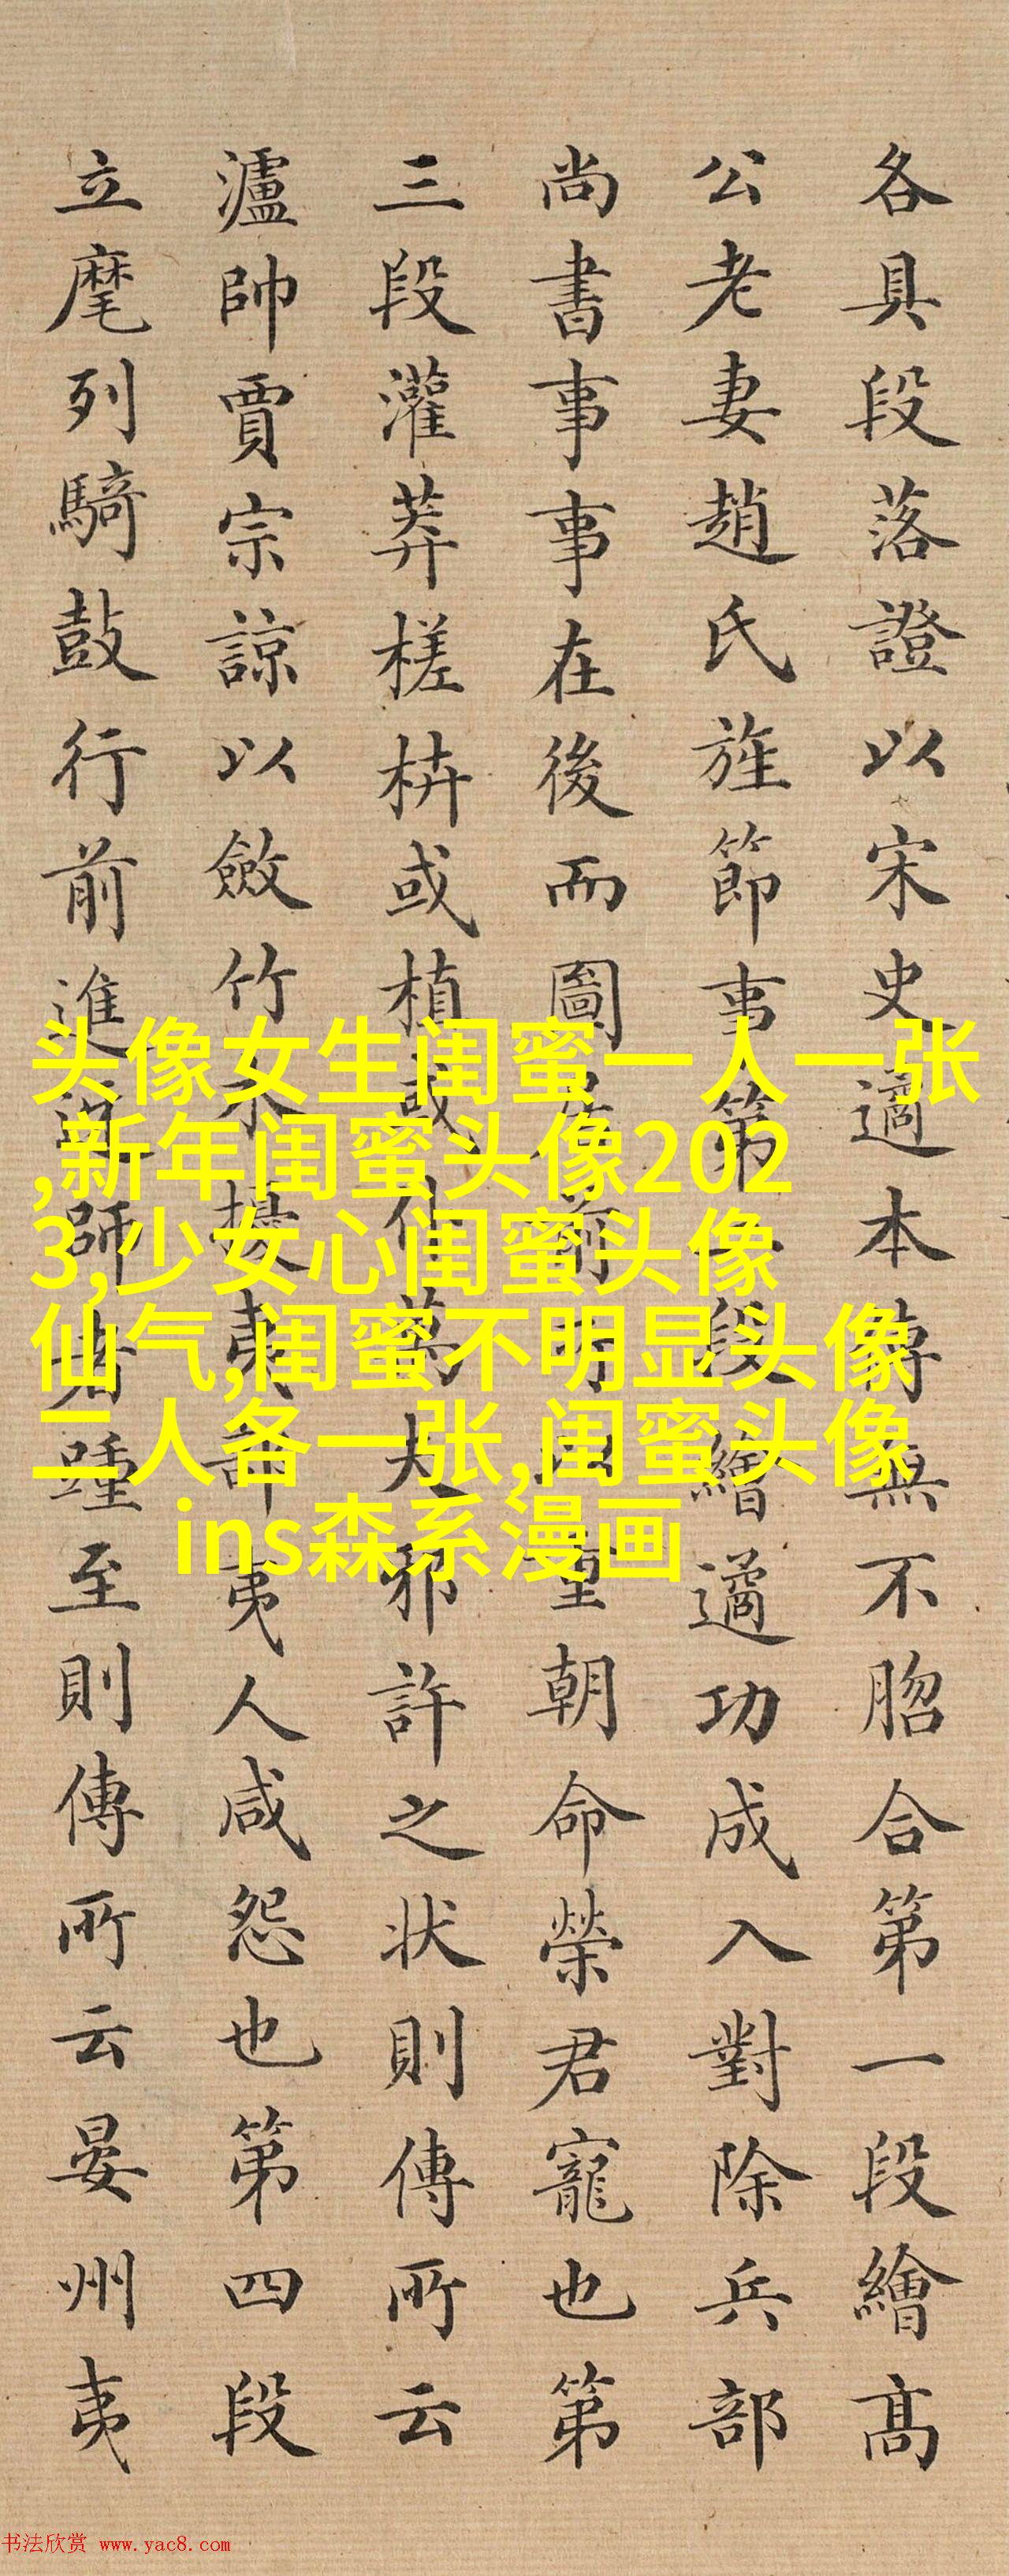 各具段落證以宋史遹本傳無不脗合第一段繪高
公老妻趙氏旌節事第段繪遹功成入對除兵部
尚書事事在後而圖前明重朝命榮君寵也第
三段灌莽槎枿或植或仆萬夫邪許之状則傳所云
瀘帥賈宗諒以斂竹木擾夷部夷人咸怨也第四段
立麾列騎鼓行前進師者踵至則傳所云晏州夷
头像女生闺蜜一人一张
,新年闺蜜头像202
3,少女心闺蜜头像
仙气,闺蜜不明显头像
二人各一张,闺蜜头像
ins森系漫画
书法欣赏 www.yac8.com